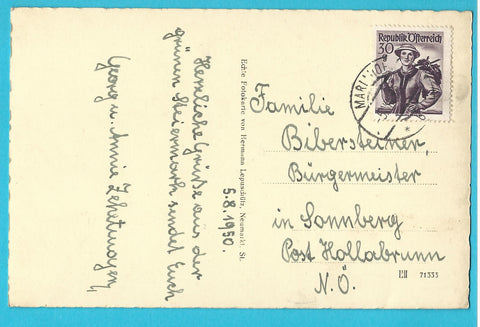 5.8.1950.
Herzliche Grüße aus der
grünen Steiermark sendet Euch
Georg u. Annie Zehetmayer,
Echte Fotokarte von Hermann Lepuschütz, Neumarkt, St.
Republik Österreich
30
Familie
Bibersteiner,
Bürgermeister
in Sonnberg
Post Hollabrunn
N.Ö.
71333